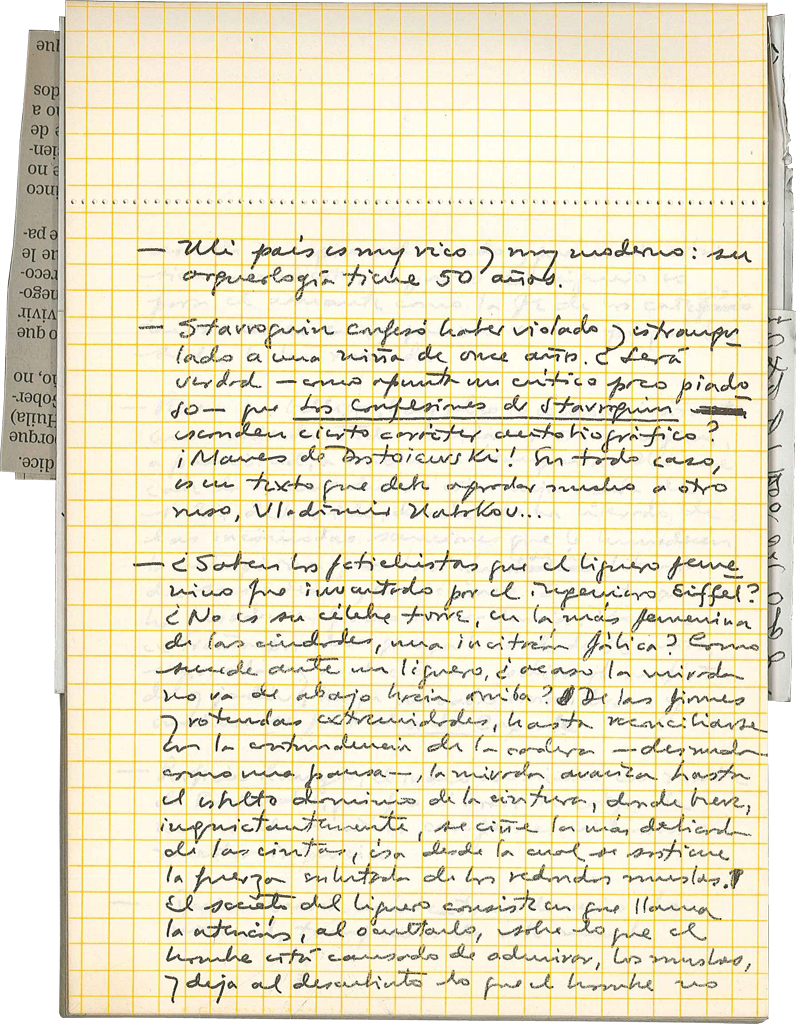 — Mi país es muy rico y muy moderno: su
arqueología tiene 50 años.
— Stavroguin confesó haber violado y estrangu
lado a una niña de once años. ¿Será
verdad —como apunta un crítico poco piado
so— que Las confesiones de Stavroguin
esconden cierto carácter autobiográfico?
¡Manes de Dostoievski! En todo caso,
es un texto que debe agradar mucho a otro
ruso, Vladimir Nabokov...
— ¿Saben los fetichistas que el liguero feme
nino fue inventado por el ingeniero Eiffel?
¿No es su célebre torre, en la más femenina
de las ciudades, una incitación fálica? Como
sucede ante un liguero, ¿acaso la mirada
no va de abajo hacia arriba? De las firmes
y rotundas extremidades, hasta reconciliarse
con la contundencia de la cadera —desnuda
como una pausa—, la mirada avanza hasta
el esbelto dominio de la cintura, donde breve,
inquietantemente, se ciñe la más delicada
de las cintas, ésa desde la cual se sostiene
la fuerza enlutada de los redondos muslos.
El secreto del liguero consiste en que llama
la atención, al ocultarlo, sobre lo que el
hombre está cansado de admirar, los muslos,
y deja al descubierto lo que el hombre no
que
dos
no a
de
ien-
no
inco
pa-
que le
reco-
nego-
vivir
o que
io, no
ober-
Huila)
porque
dice.